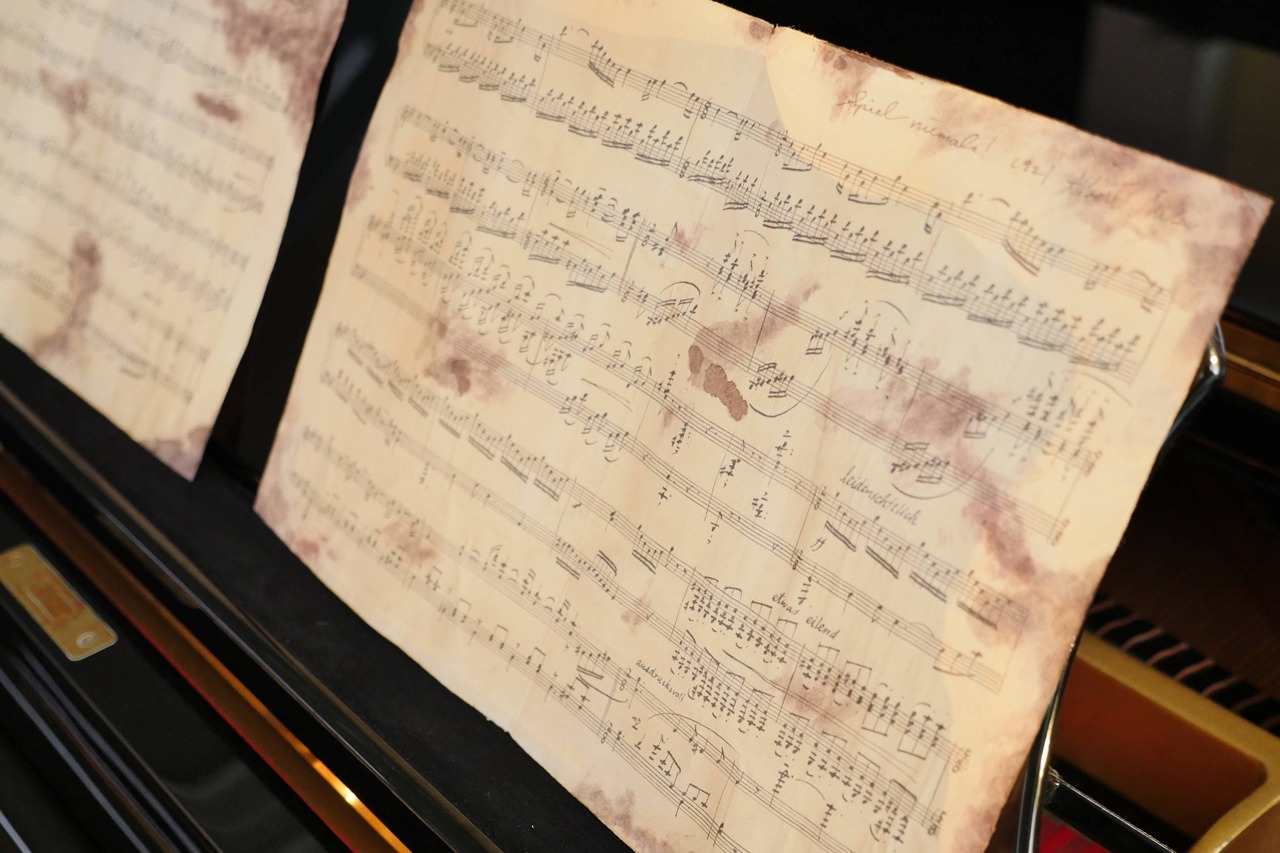 Spiel niemals! 1921
leidenschftlich
ff
etwas eilend
ausdrucksvoll